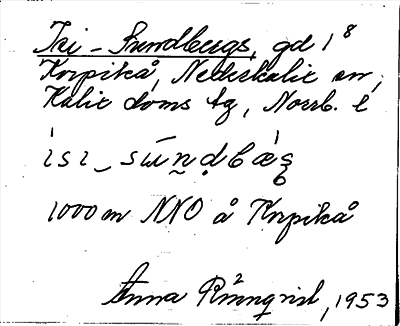 Isi-Sundbergs, gd 1⁸
Korpikå, Nederkalix sn,
Kalix doms tg, Norrb. l
ìsi‿sún̰ḍbæ̀ş
1000 m NNO å Korpikå
Anna Rönnqvist, 1953